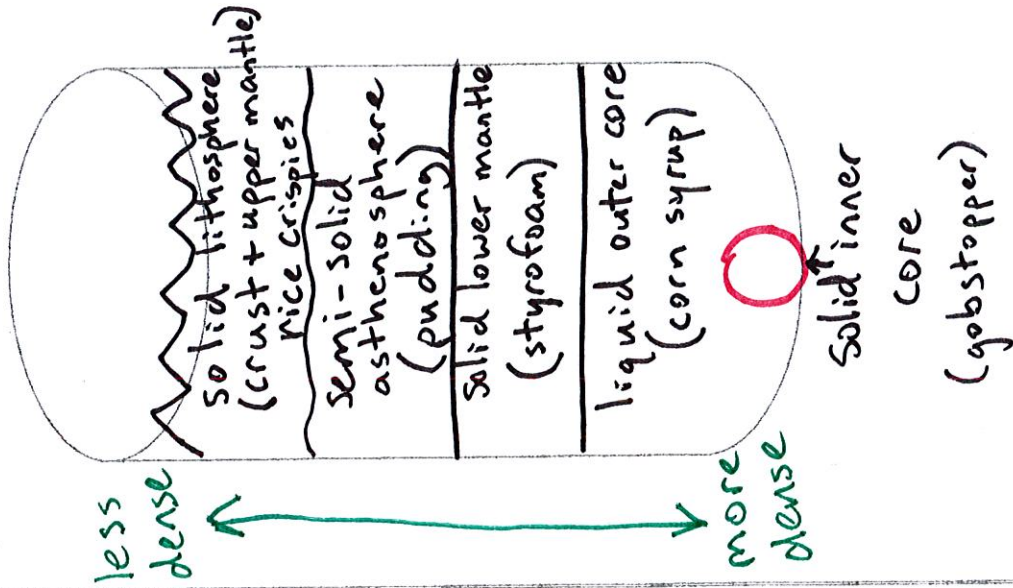 less
dense
solid lithosphere
(crust + upper mantle)
rice crispies
semi-solid
asthenosphere
(pudding)
solid lower mantle
(styrofoam)
liquid outer core
(corn syrup)
more
dense
Solid inner
core
(gobstopper)